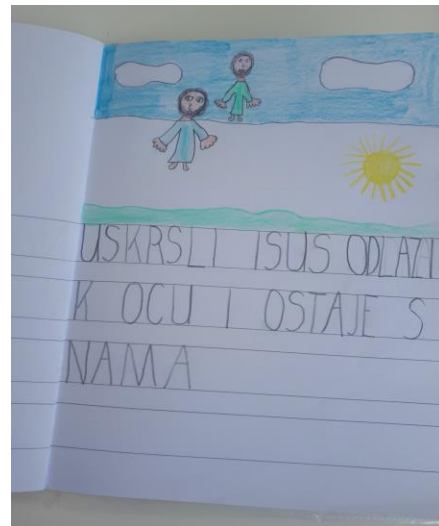 USKRSLI ISUS ODLAZI
K OCU I OSTAJE S
NAMA